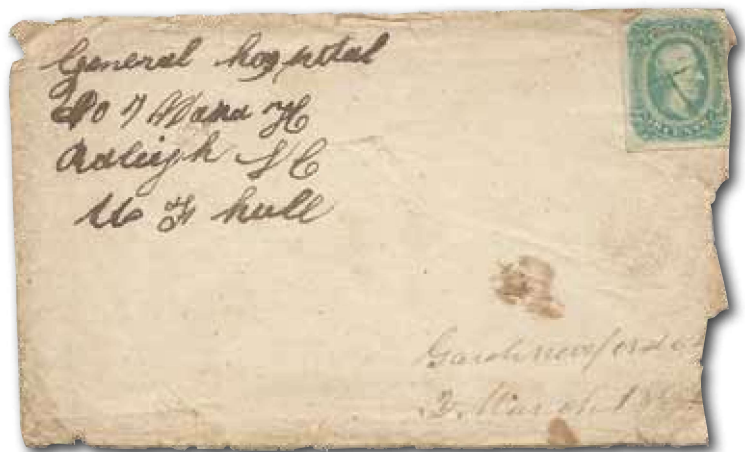 General hospital
No 7 Ward H
Raleigh N C
W F hull
March 186